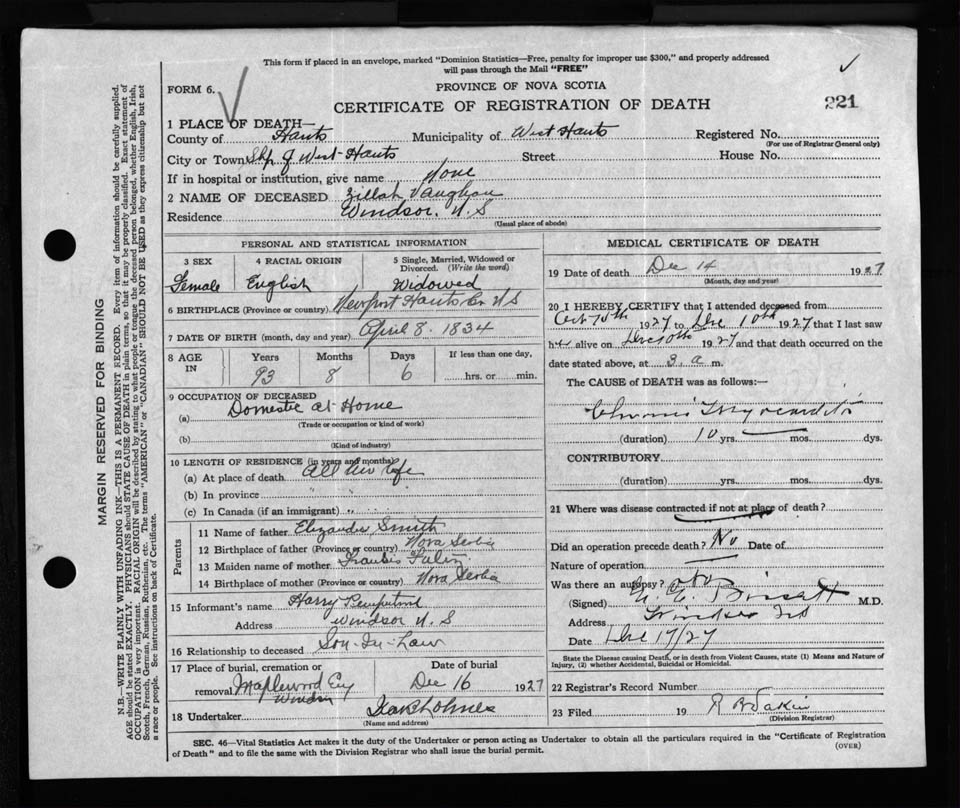 This form if placed in an envelope, marked "Dominion Statistics—Free, penalty for improper use $300," and properly addressed
will pass through the Mail "FREE"
FORM 6.
PROVINCE OF NOVA SCOTIA
CERTIFICATE OF REGISTRATION OF DEATH
221
1 PLACE OF DEATH—
County of Hants Municipality of West Hants Registered No.
(For use of Registrar General only)
City or Town Shp. of West-Hants Street House No.
If in hospital or institution, give name None
2 NAME OF DECEASED Zillah Vaughan
Residence Windsor, N.S
(Usual place of abode)
PERSONAL AND STATISTICAL INFORMATION
3 SEX
Female
4 RACIAL ORIGIN
English
5 Single, Married, Widowed or
Divorced. (Write the word)
Widowed
6 BIRTHPLACE (Province or country) Newport Hants Co N S
7 DATE OF BIRTH (month, day and year) April 8. 1834
8 AGE IN
Years Months Days
93 8 6
If less than one day,
hrs. or min.
9 OCCUPATION OF DECEASED
(a) Domestic at Home
(Trade or occupation or kind of work)
(b)
(Kind of industry)
10 LENGTH OF RESIDENCE (in years and months)
(a) At place of death All her life
(b) In province " "
(c) In Canada (if an immigrant)
Parents
11 Name of father Smith
12 Birthplace of father (Province or country) Nova Scotia
13 Maiden name of mother
14 Birthplace of mother (Province or country) Nova Scotia
15 Informant's name Harry
Address Windsor N. S
16 Relationship to deceased Son-In-Law
17 Place of burial, cremation or
removal Maplewood Cey
Windsor
Date of burial
Dec 16 1927
18 Undertaker
(Name and address)
MEDICAL CERTIFICATE OF DEATH
19 Date of death Dec 14 1927
(Month, day and year)
20 I HEREBY CERTIFY that I attended deceased from
Oct 1927 to Dec 10th 1927 that I last saw
her alive on Dec 10th 1927 and that death occurred on the
date stated above, at 3. a m.
The CAUSE OF DEATH was as follows:—
Chronic Myocarditis
(duration) 10 yrs. mos. dys.
CONTRIBUTORY
(duration) yrs. mos. dys.
21 Where was disease contracted if not at place of death?
Did an operation precede death? No Date of
Nature of operation
Was there an autopsy? No
(Signed) Bissett M.D.
Address Windsor NS
Date Dec 17/27
State the Disease causing Death, or in death from Violent Causes, state (1) Means and Nature of
Injury, (2) whether Accidental, Suicidal or Homicidal.
22 Registrar's Record Number
23 Filed 19
(Division Registrar)
SEC. 46—Vital Statistics Act makes it the duty of the Undertaker or person acting as Undertaker to obtain all the particulars required in the "Certificate of Registration
of Death" and to file the same with the Division Registrar who shall issue the burial permit.
(OVER)
MARGIN RESERVED FOR BINDING
N.B.—WRITE PLAINLY WITH UNFADING INK—THIS IS A PERMANENT RECORD. Every item of information should be carefully supplied.
AGE should be stated EXACTLY. PHYSICIANS should STATE CAUSE OF DEATH in plain terms, so that it may be properly classified. Exact statement of
OCCUPATION is very important. RACIAL ORIGIN will be described by stating to what people or tongue the deceased person belonged, whether English, Irish,
Scotch, French, German, Russian, Ruthenian, etc. The terms "AMERICAN" or "CANADIAN" SHOULD NOT BE USED as they express citizenship but not
a race or people. See instructions on back of Certificate.